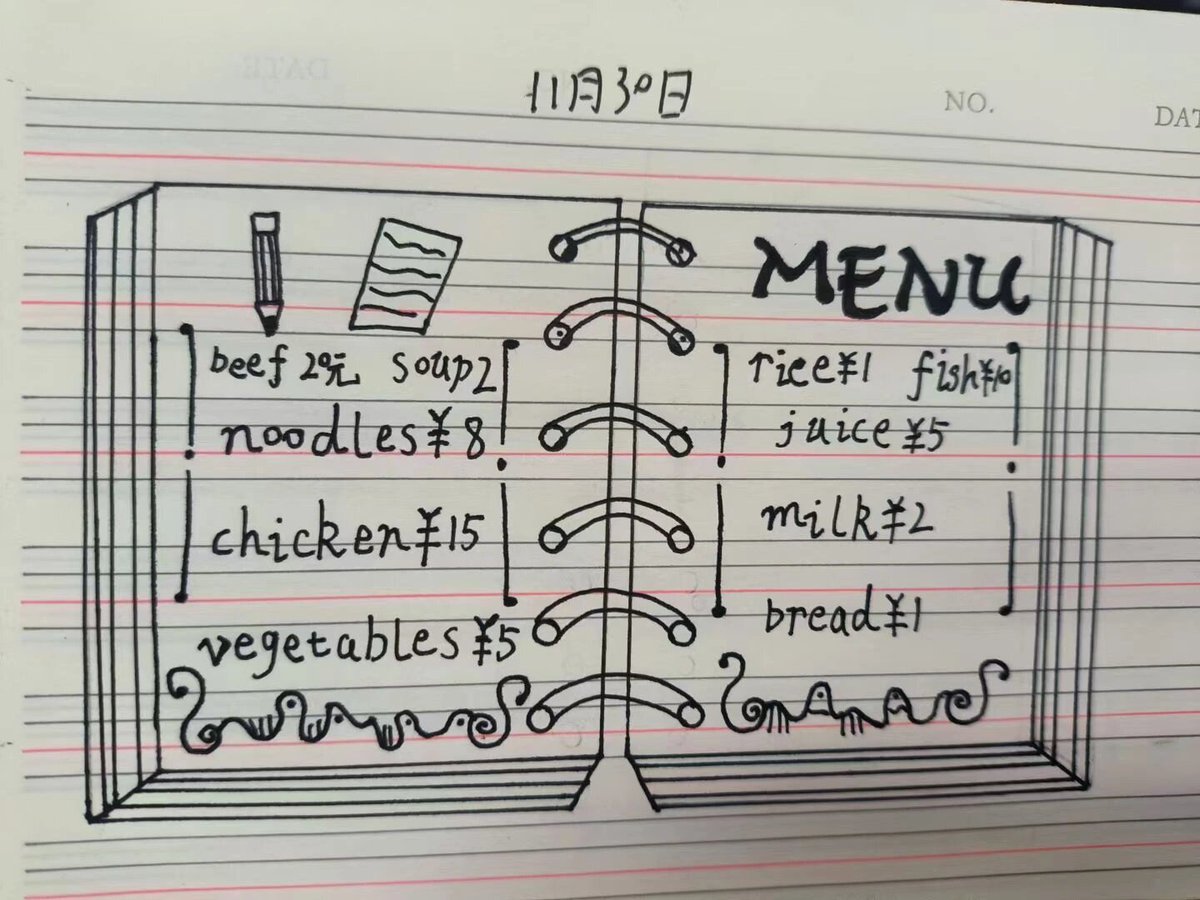 11月30日
NO.
DAT
MENU
beef 29元 soup2
noodles¥8
chicken¥15
vegetables¥5
rice¥1 fish¥10
juice¥5
milk¥2
bread¥1